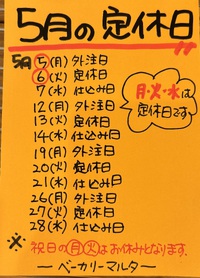 5月の定休日
5月 5(月) 外注日
6(火) 定休日
7(水) 仕込み日
12(月) 外注日
13(火) 定休日
14(水) 仕込み日
19(月) 外注日
20(火) 定休日
21(水) 仕込み日
26(月) 外注日
27(火) 定休日
28(水) 仕込み日
月・火・水は
定休日です
※ 祝日の月火はお休みとなります。
ーベーカリーマルター